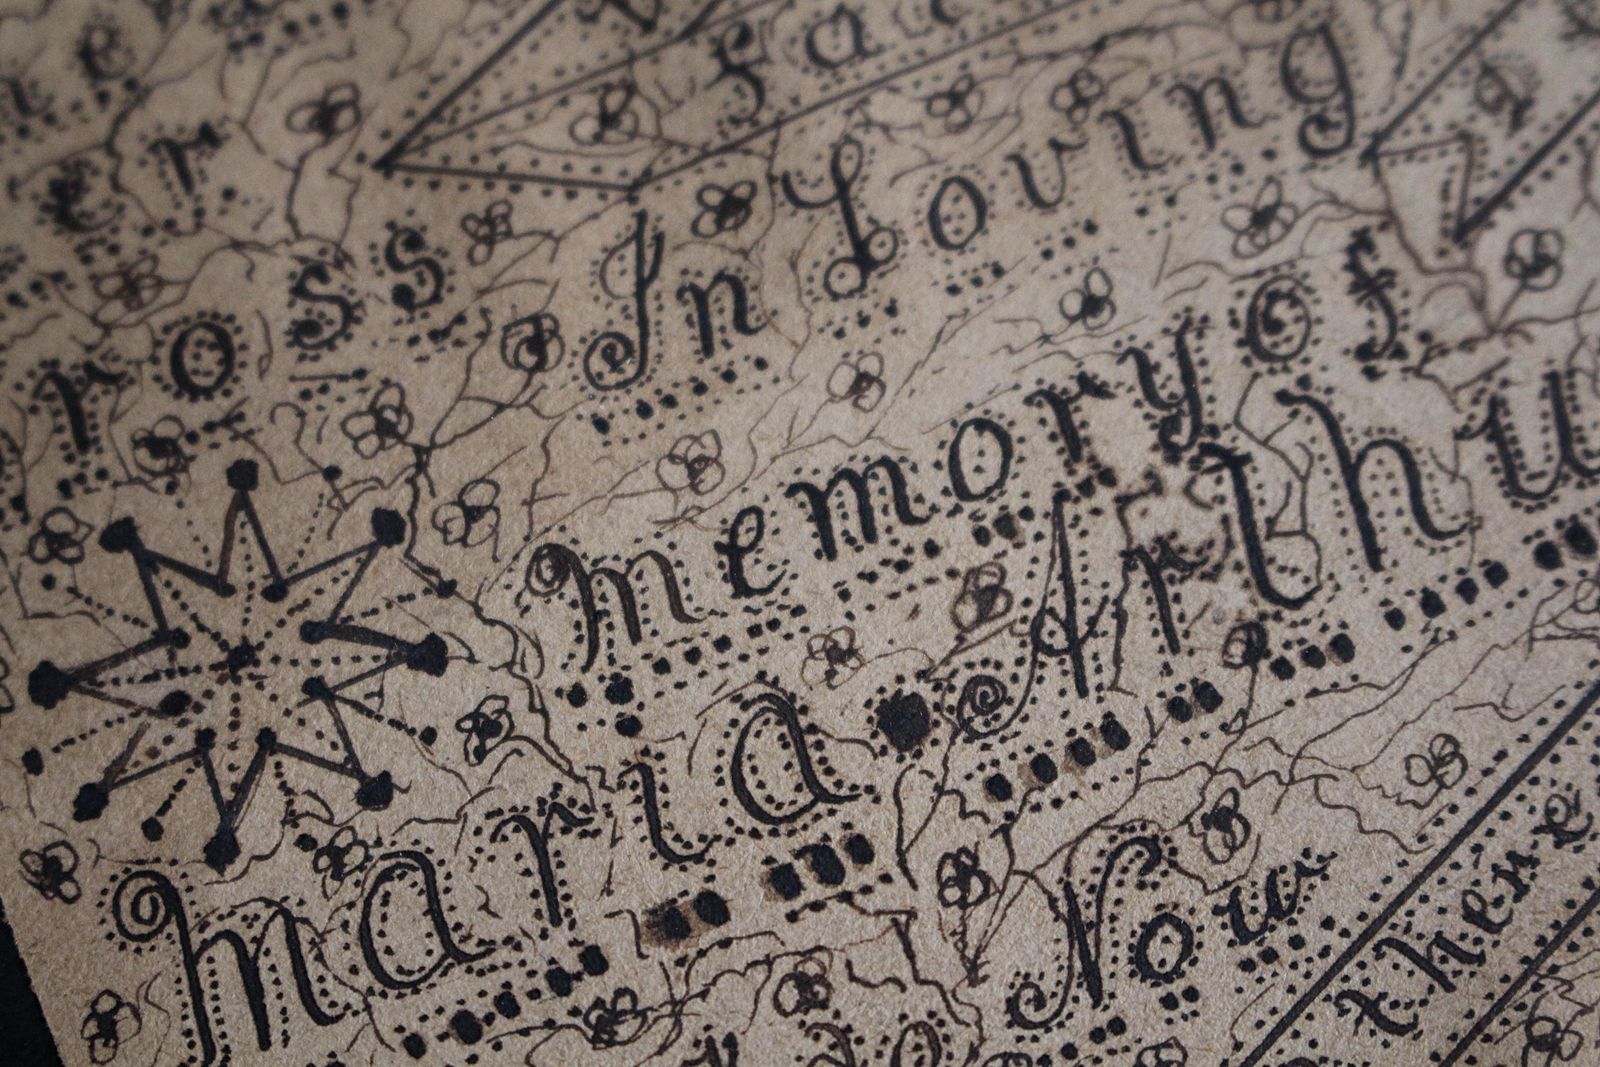 er
ross In Loving
Memory of
Maria Arthu
Now
there